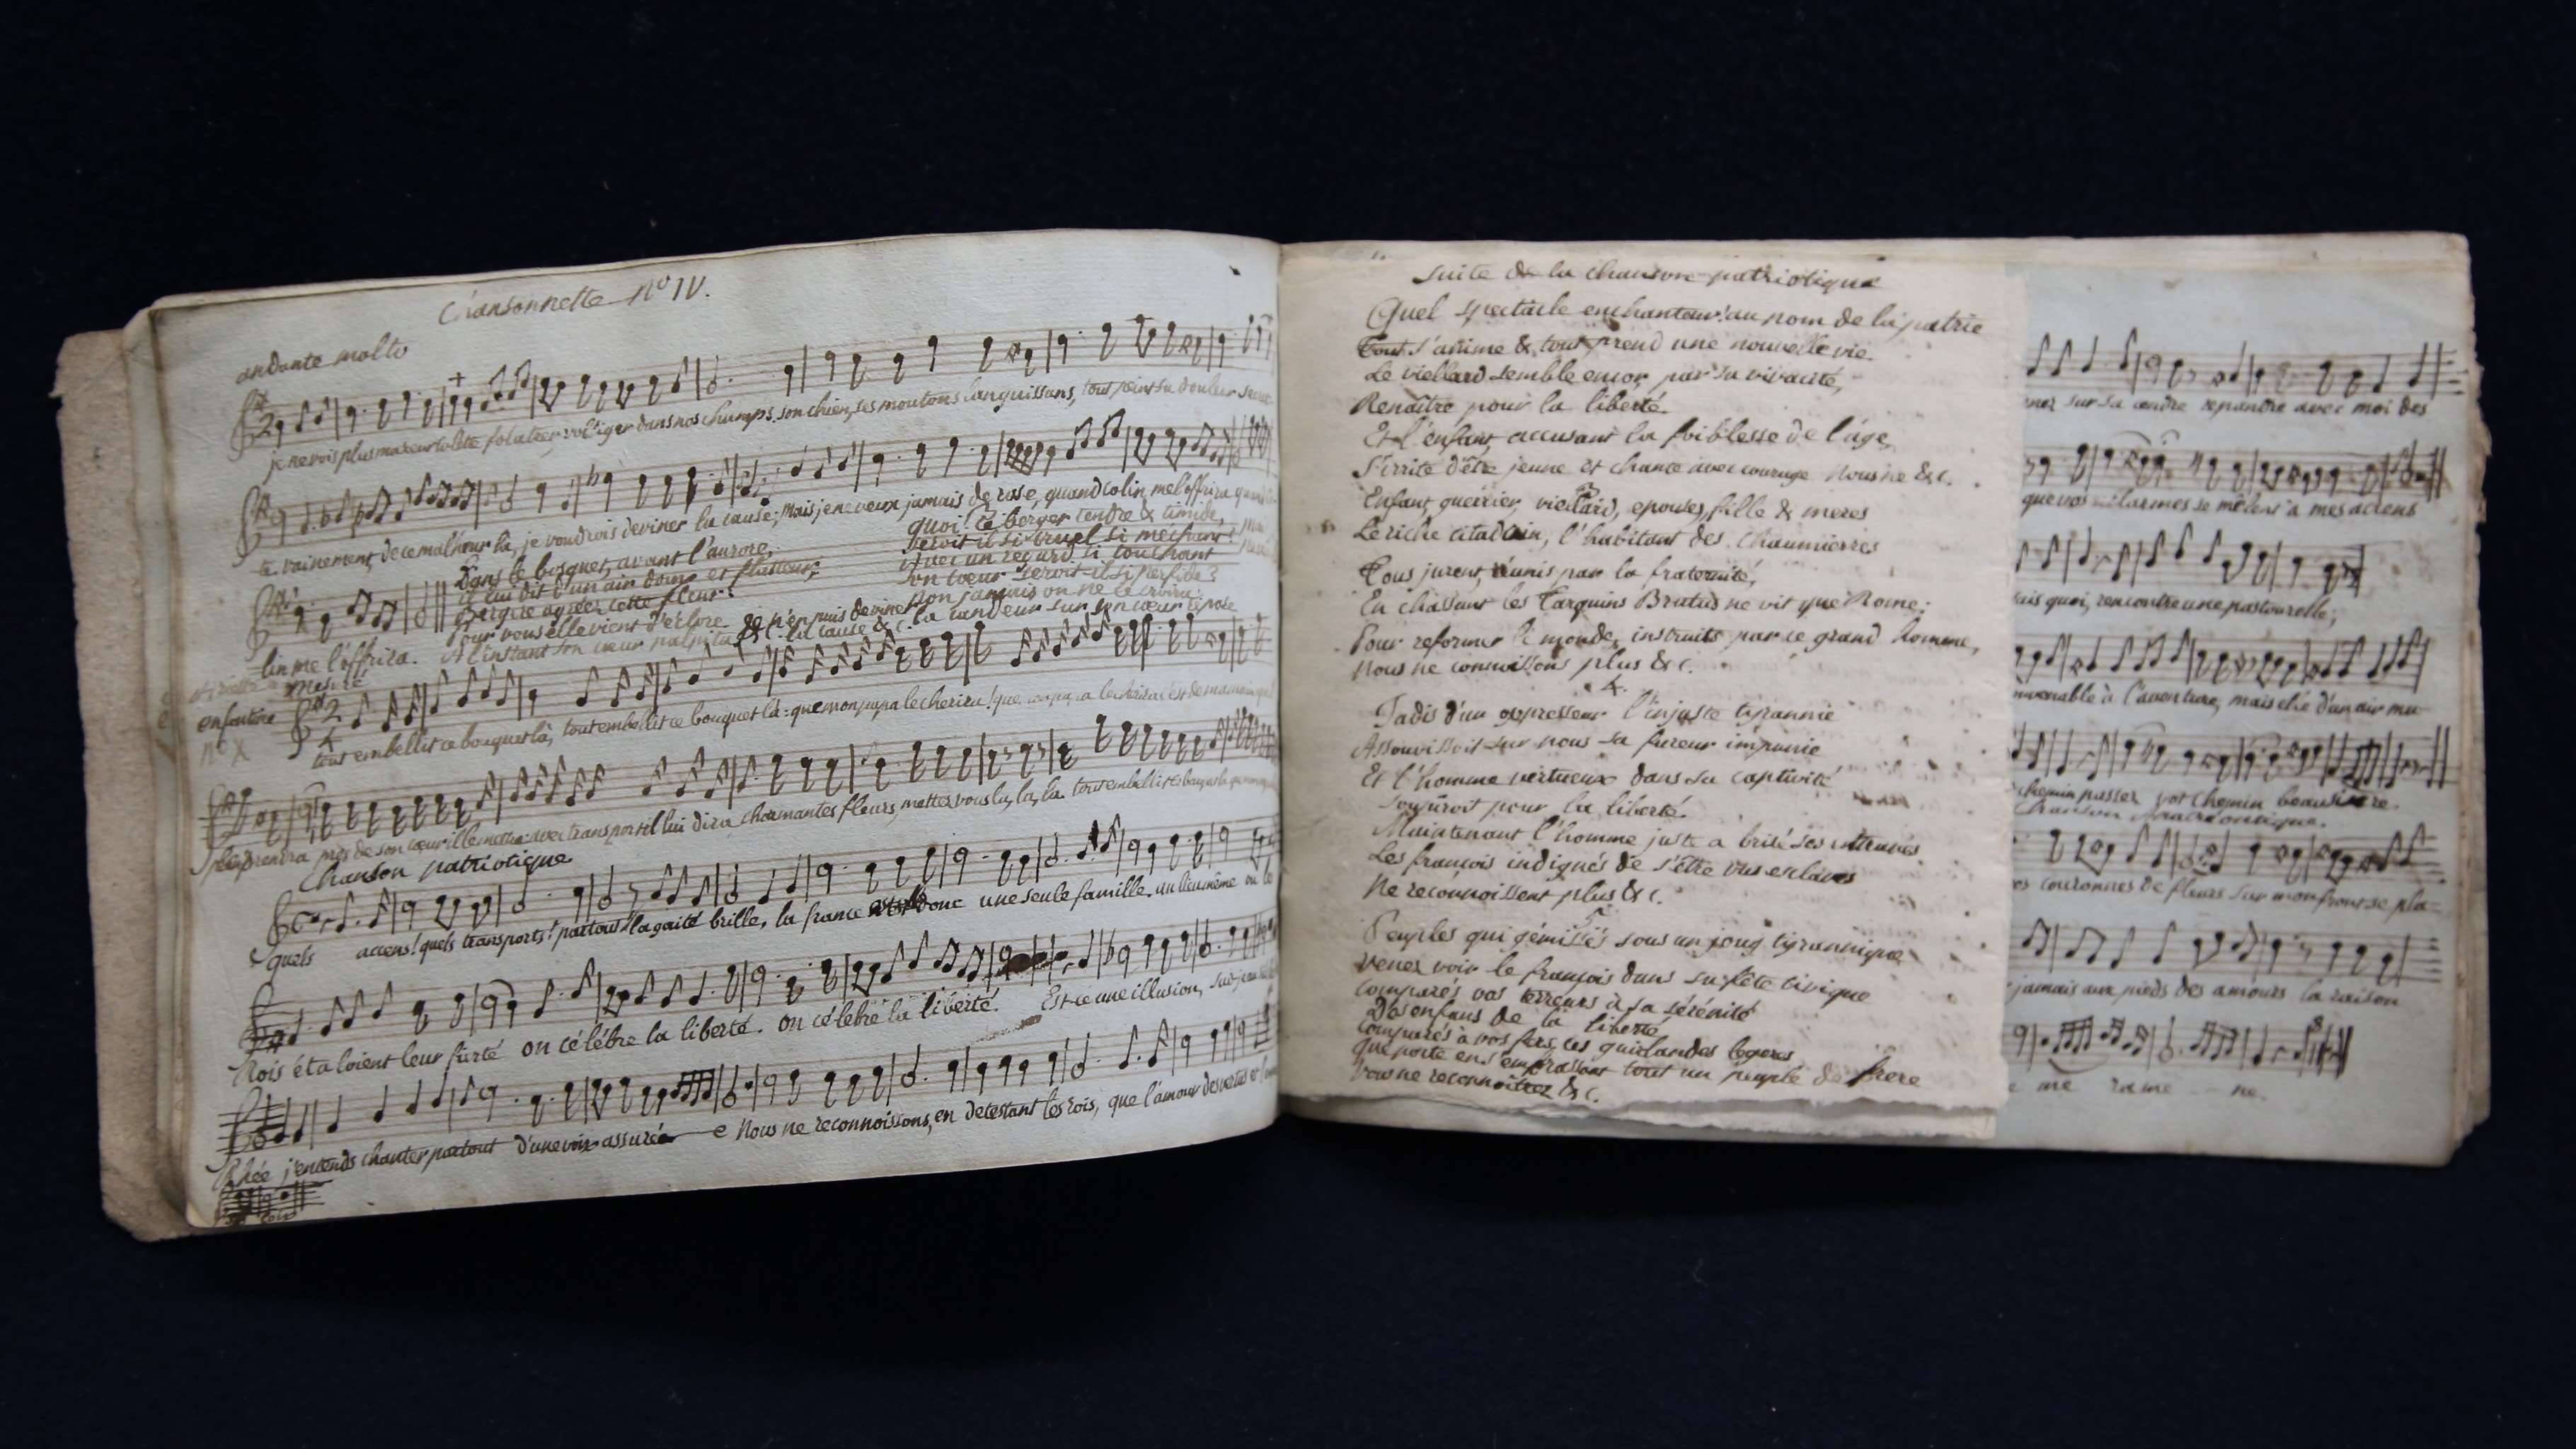 Chansonnette No IV.
andante molto
je ne vois plus ma soeur Colette folatrer, voltiger dans nos champs. son chien, ses moutons languissans, tout peint sa douleur
te vainement, de ce malheur là, je voudrois deviner la cause; mais je ne veux jamais de rose, quand colin me l'offrira
Dans le bosquet, avant l'aurore,
il lui dit d'un air doux et flatteur,
Bergere agréez cette fleur
Pour vous elle vient d'éclore
A l'instant son cœur palpita
je n'en puis deviner la cause &c.
quoi! ce berger tendre & timide,
seroit-il si cruel si méchant?
Avec un regard si touchant
son coeur seroit-il si perfide?
non jamais on ne le croira:
la candeur sur son cœur repose
lin me l'offrira.
mesuré
enfantine
No X
tout embellit ce bouquet là, tout embellit ce bouquet là: que mon papa le cherira! que mon papa le cherira c'est de maman
prendra près de son cœur il le mettra: avec transport il lui dira, charmantes fleurs, mettez vous là, là, la tout embellit ce bouquet là
Chanson patriotique
quels accens! quels transports! partout la gaité brille, la france est donc une seule famille. un lieu même ou le
Rois étaloient leur fierté on célébre la liberté. on célèbre la liberté. Est-ce une illusion, suis-je
j'entends chanter partout d'une voix assurée Nous ne reconnoissons, en detestant les rois, que l'amour des vertus et
suite de la chanson patriotique
Quel spectacle enchanteur! au nom de la patrie
Tout s'anime & tout prend une nouvelle vie
Le viellard semble encor, par sa vivacité,
Renaître pour la liberté.
Et l'enfant, accusant la foiblesse de l'âge,
S'irrite d'être jeune et chante avec courage Nous ne &c.
Enfant, guerrier, viellard, epouses, fille & meres
Le riche citadin, l'habitant des chaumierres
Tous jurent, réunis par la fraternité,
En chassant les Tarquins Brutus ne vit que Rome:
Pour reformer le monde, instruits par ce grand homme,
Nous ne connoissons plus &c.
4.
Jadis d'un oppresseur l'injuste tyrannie
Assouvissoit sur nous sa fureur impunie
Et l'homme vertueux dans sa captivité
soupiroit pour la liberté
Maintenant l'homme juste a brisé ses entraves
Les françois indignés de s'être vus esclaves
Ne reconnoissent plus &c.
5
Peuples qui gémissés sous un joug tyrannique
venez voir le françois dans sa fête civique
comparés vos terreurs à sa sérénité
Des enfans de la liberté
comparés à vos fers, ces guirlandes legeres
que porte en s'embrassant tout un peuple de frere
Vous ne reconnoitrez &c.
nez sur sa cendre repandre avec moi des
que vos larmes se mêlent à mes accens
sais quoi, rencontre une pastourelle;
à l'aventure, mais elle d'un air mu
chemin passez vot chemin beau sire.
Chanson anacréontique.
couronnes de fleurs sur mon front se pla=
jamais aux pieds des amours la raison
me rame ne.